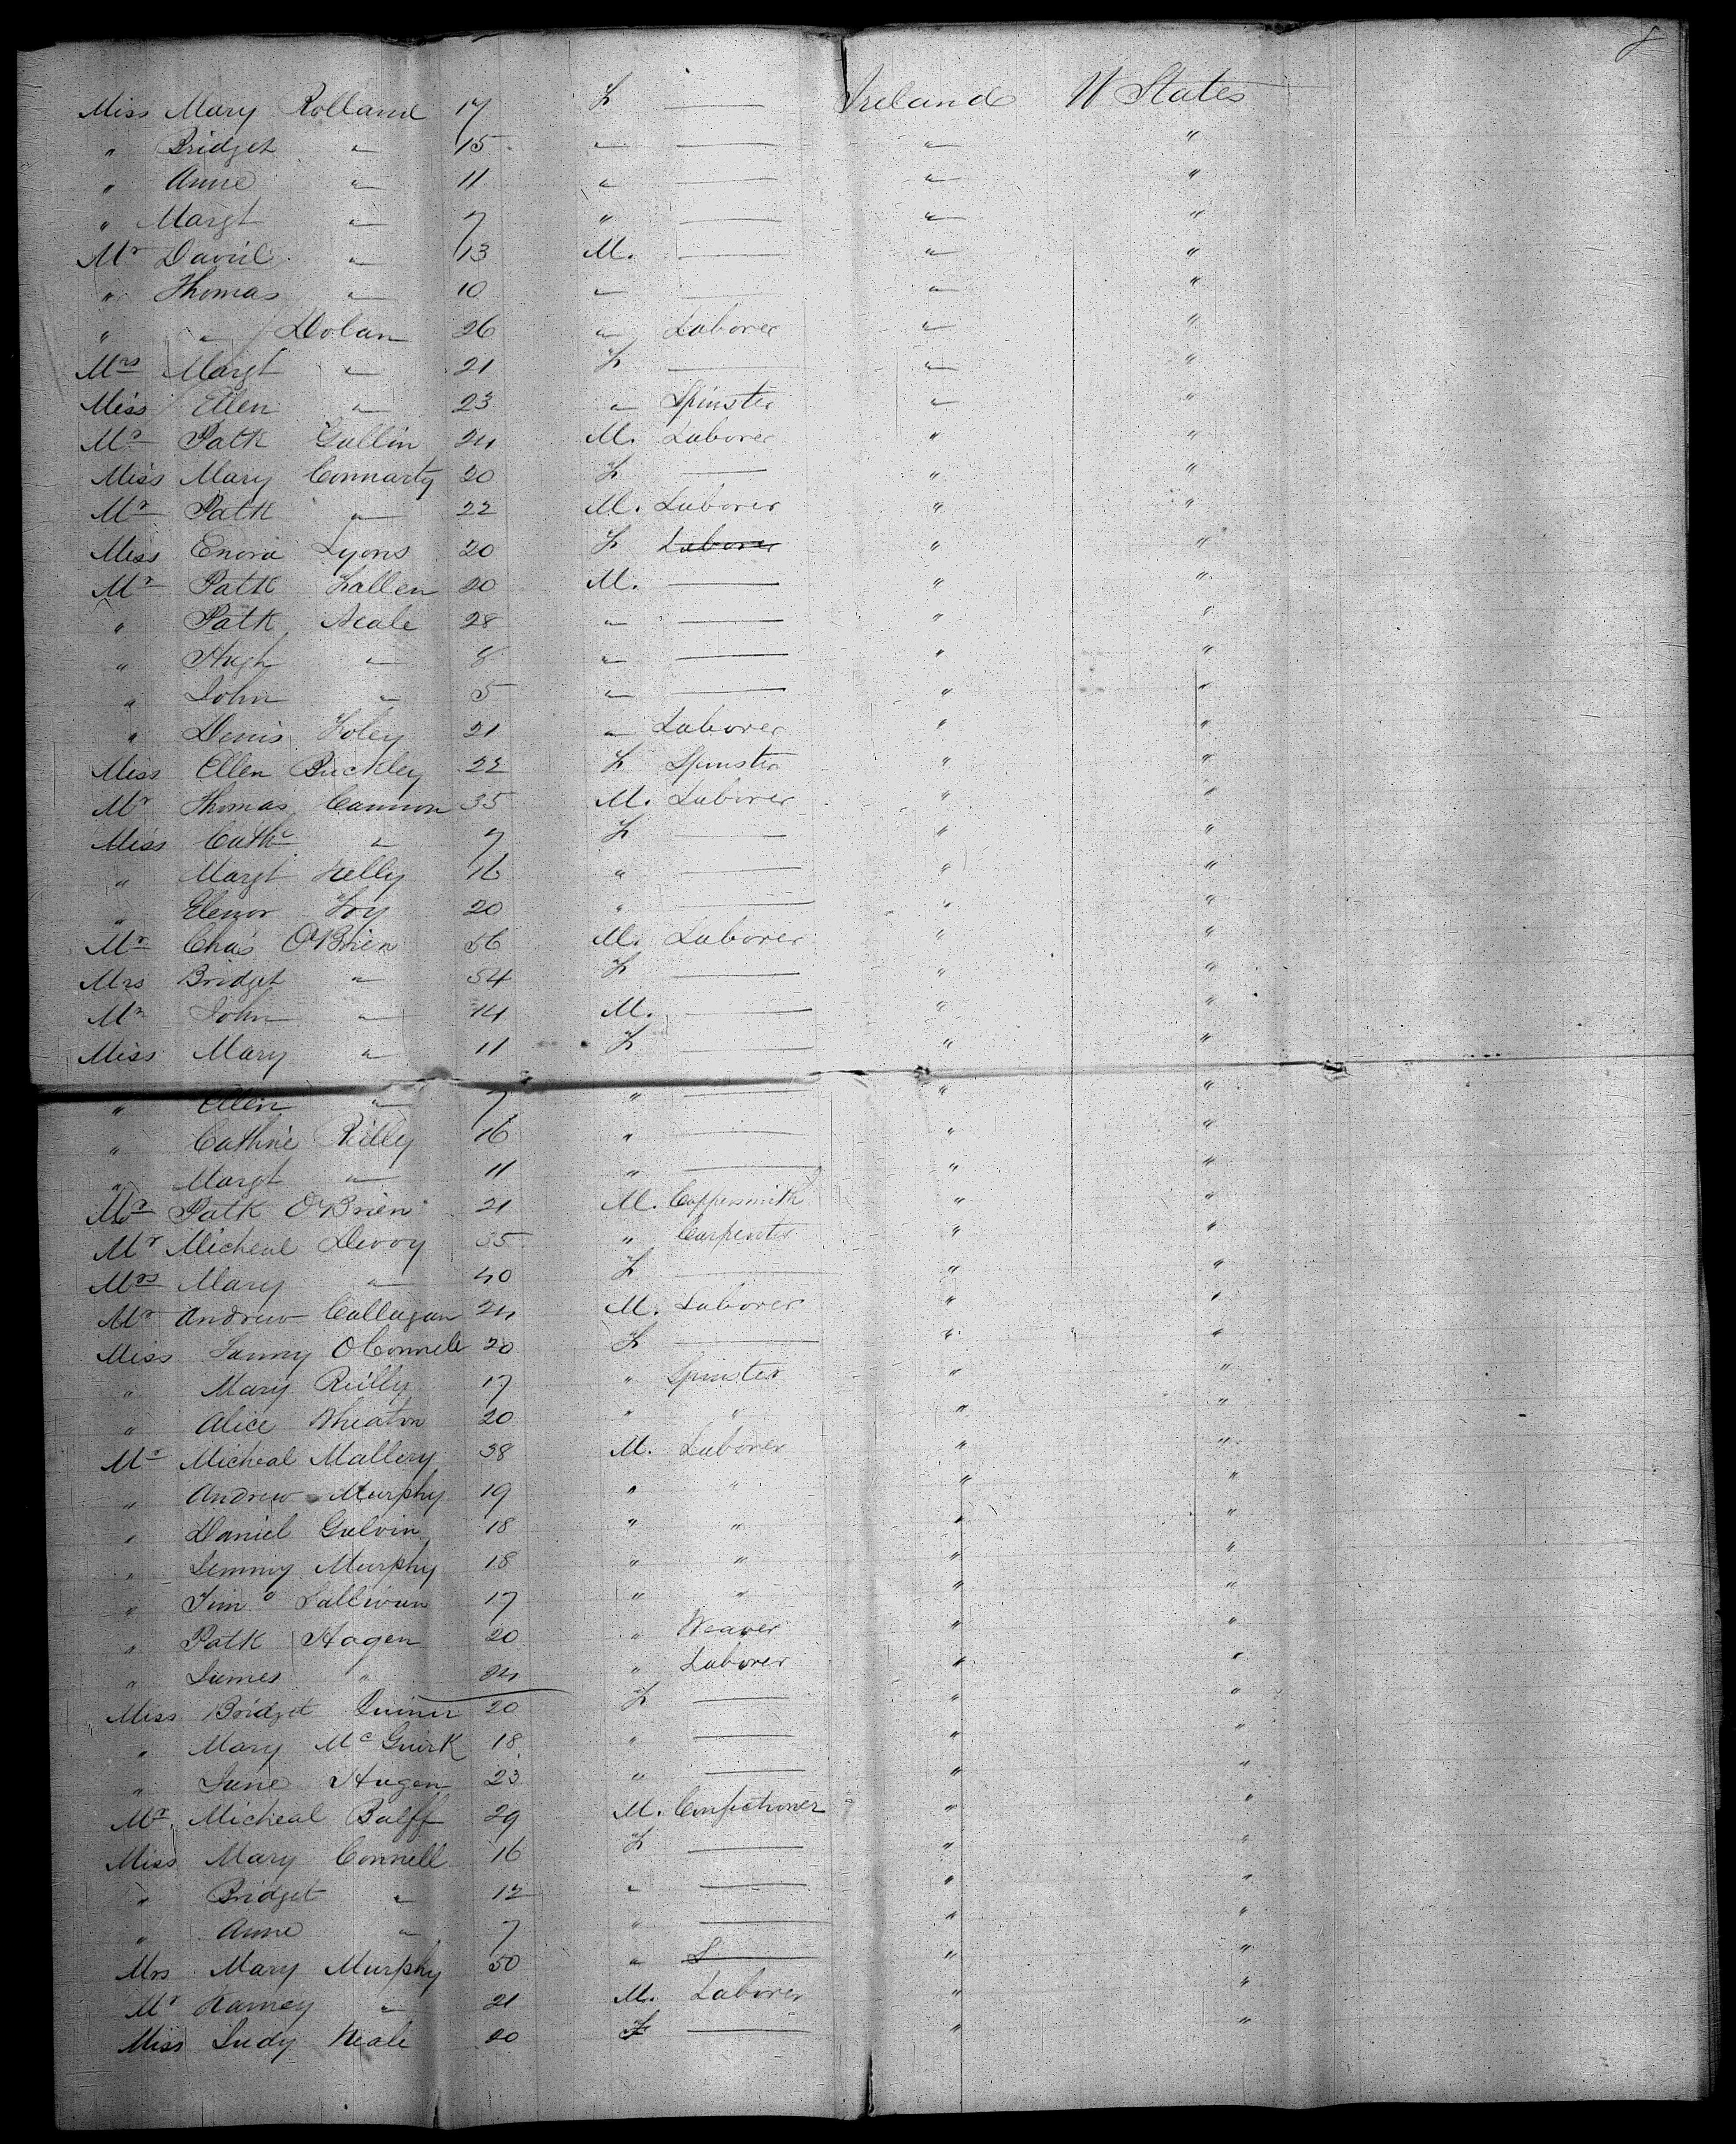 Miss Mary Rolland 17 F — Ireland U States
" Bridget " 15 " — " "
" Anne " 11 " — " "
" Margt " 7 " — " "
Mr David " 13 M. — " "
" Thomas " 10 " — " "
" " Dolan 26 " Laborer " "
Mrs Margt " 21 F — " "
Miss Ellen " 23 " Spinster " "
Mr Patk Gallin 24 M. Laborer " "
Miss Mary Connarty 20 F — " "
Mr Patk " 22 M. Laborer " "
Miss Enora Lyons 20 F Laborer " "
Mr Patk Fallen 20 M. — " "
" Patk Neale 28 " — " "
" Hugh " 8 " — " "
" John " 5 " — " "
" Denis Foley 21 " Laborer " "
Miss Ellen Buckley 22 F Spinster " "
Mr Thomas Cannon 35 M. Laborer " "
Miss Cathe " 7 F — " "
" Margt Kelly 16 " — " "
" Elenor Foy 20 " — " "
Mr Chas O'Brien 56 M. Laborer " "
Mrs Bridget " 54 F — " "
Mr John " 14 M. — " "
Miss Mary " 11 F — " "
" Ellen " 7 " — " "
" Cathrie Reilly 16 " — " "
" Margt " 11 " — " "
Mr Patk O'Brien 21 M. Coppersmith " "
Mr Micheal Devoy 35 " Carpenter " "
Mrs Mary " 40 F — " "
Mr Andrew Callagan 24 M. Laborer " "
Miss Fanny OConnell 20 F — " "
" Mary Reilly 17 " Spinster " "
" Alice Wheaton 20 " " " "
Mr Micheal Mallery 38 M. Laborer " "
" Andrew Murphy 19 " " " "
" Daniel Galvin 18 " " " "
" Jemmy Murphy 18 " " " "
" Timo Sullivan 17 " " " "
" Patk Hagen 20 " Weaver " "
" James " 24 " Laborer " "
Miss Bridget 20 F — " "
" Mary McGuirk 18 " — " "
" Jane Hagen 23 " — " "
Mr Micheal Balff 29 M. Confectioner " "
Miss Mary Connell 16 F — " "
" Bridget " 12 " — " "
" Anne " 7 " — " "
Mrs Mary Murphy 50 " — " "
Mr " 21 M. Laborer " "
Miss Judy Neale 20 F — " "